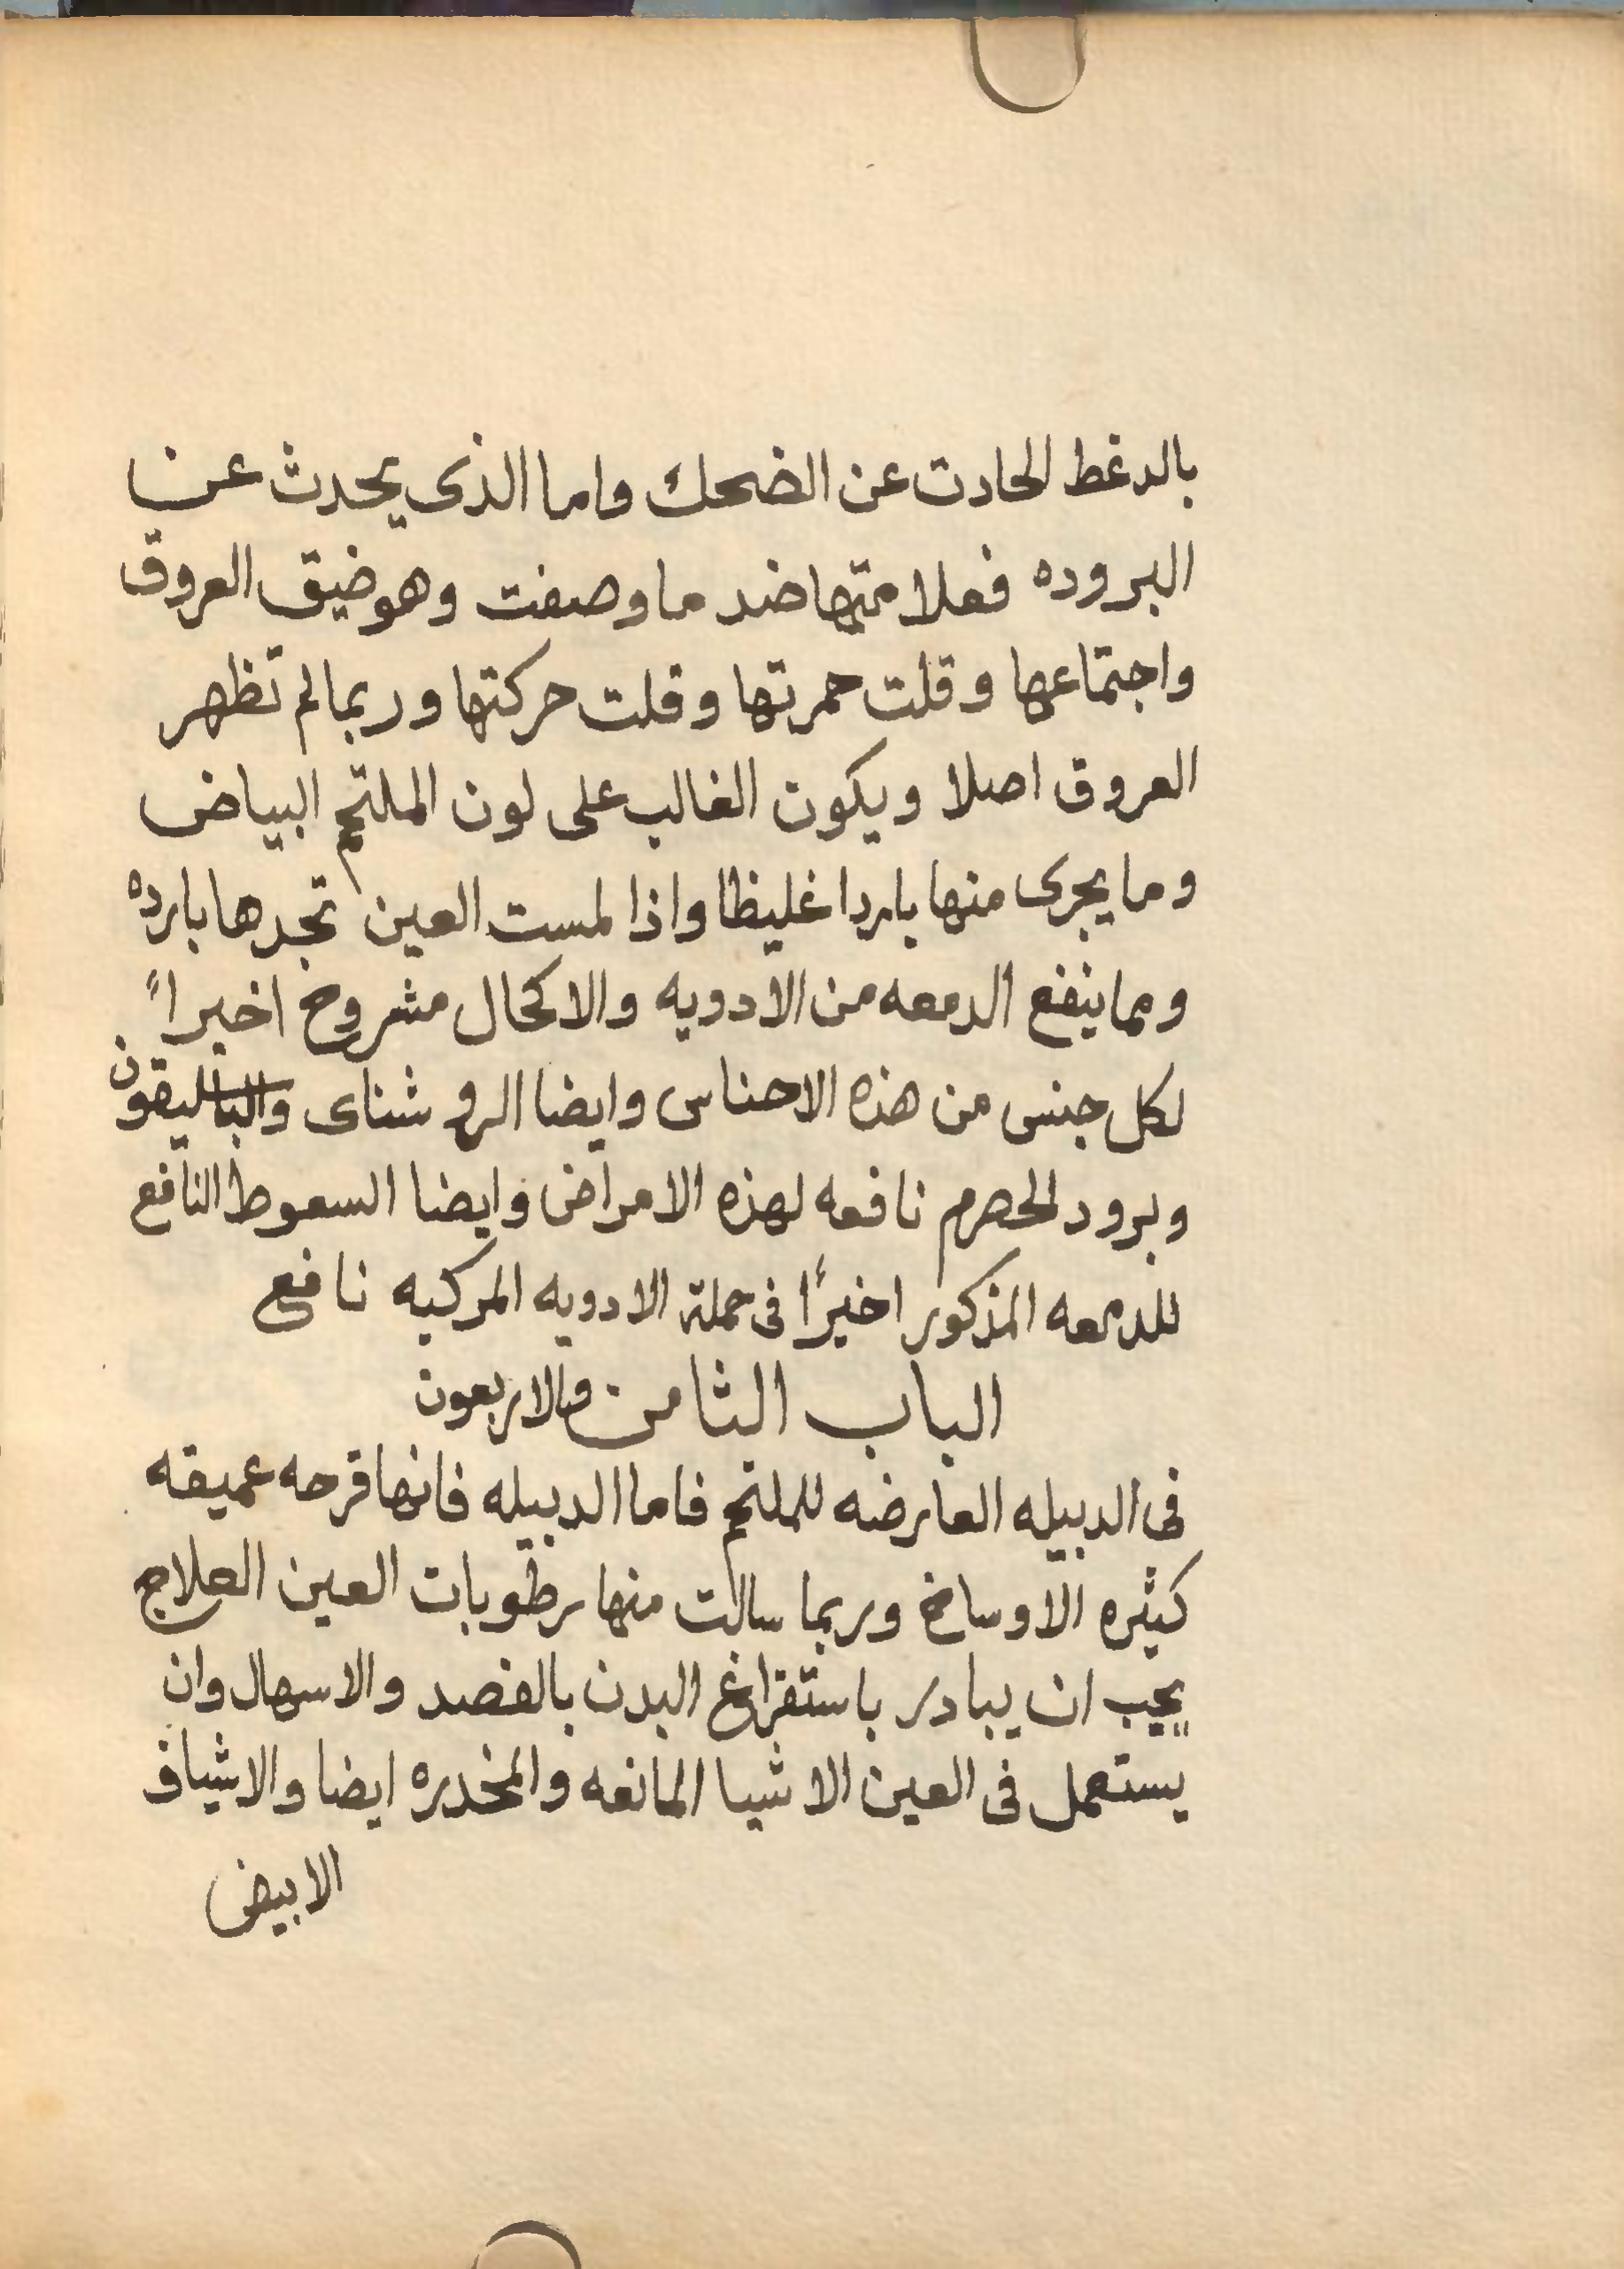 بالدغط الحادت عن الضحك واما الذى يحدث عن
البروده فعلامتها ضد ما وصفت وهو ضيق العروق
واجتماعها وقلت حمرتها وقلت حركتها وربما لم تظهر
العروق اصلا ويكون الغالب على لون الملتحم البياض
وما يجرى منها باردا غليظا واذا لمست العين تجدها بارده
ومما ينفع الدمعه من الادويه والاكحال مشروح اخيراً
لكل جنس من هذه الاحناس وايضا الروشناى والباسليقون
وبرود الحصرم نافعه لهذه الامراض وايضا السعوط النافع
للدمعه المذكور اخيرًا فى حملة الادويه المركبه نافع
الباب الثامن والاربعون
فى الدبيله العارضه للملتحم فاما الدبيله فانها قرحه عميقه
كثيره الاوساخ وربما سالت منها رطوبات العين العلاج
يجب ان يبادر باستفراغ البدن بالفصد والاسهال وان
يستعمل فى العين الاشيا المانعه والمخدره ايضا والاشياف
الابيض